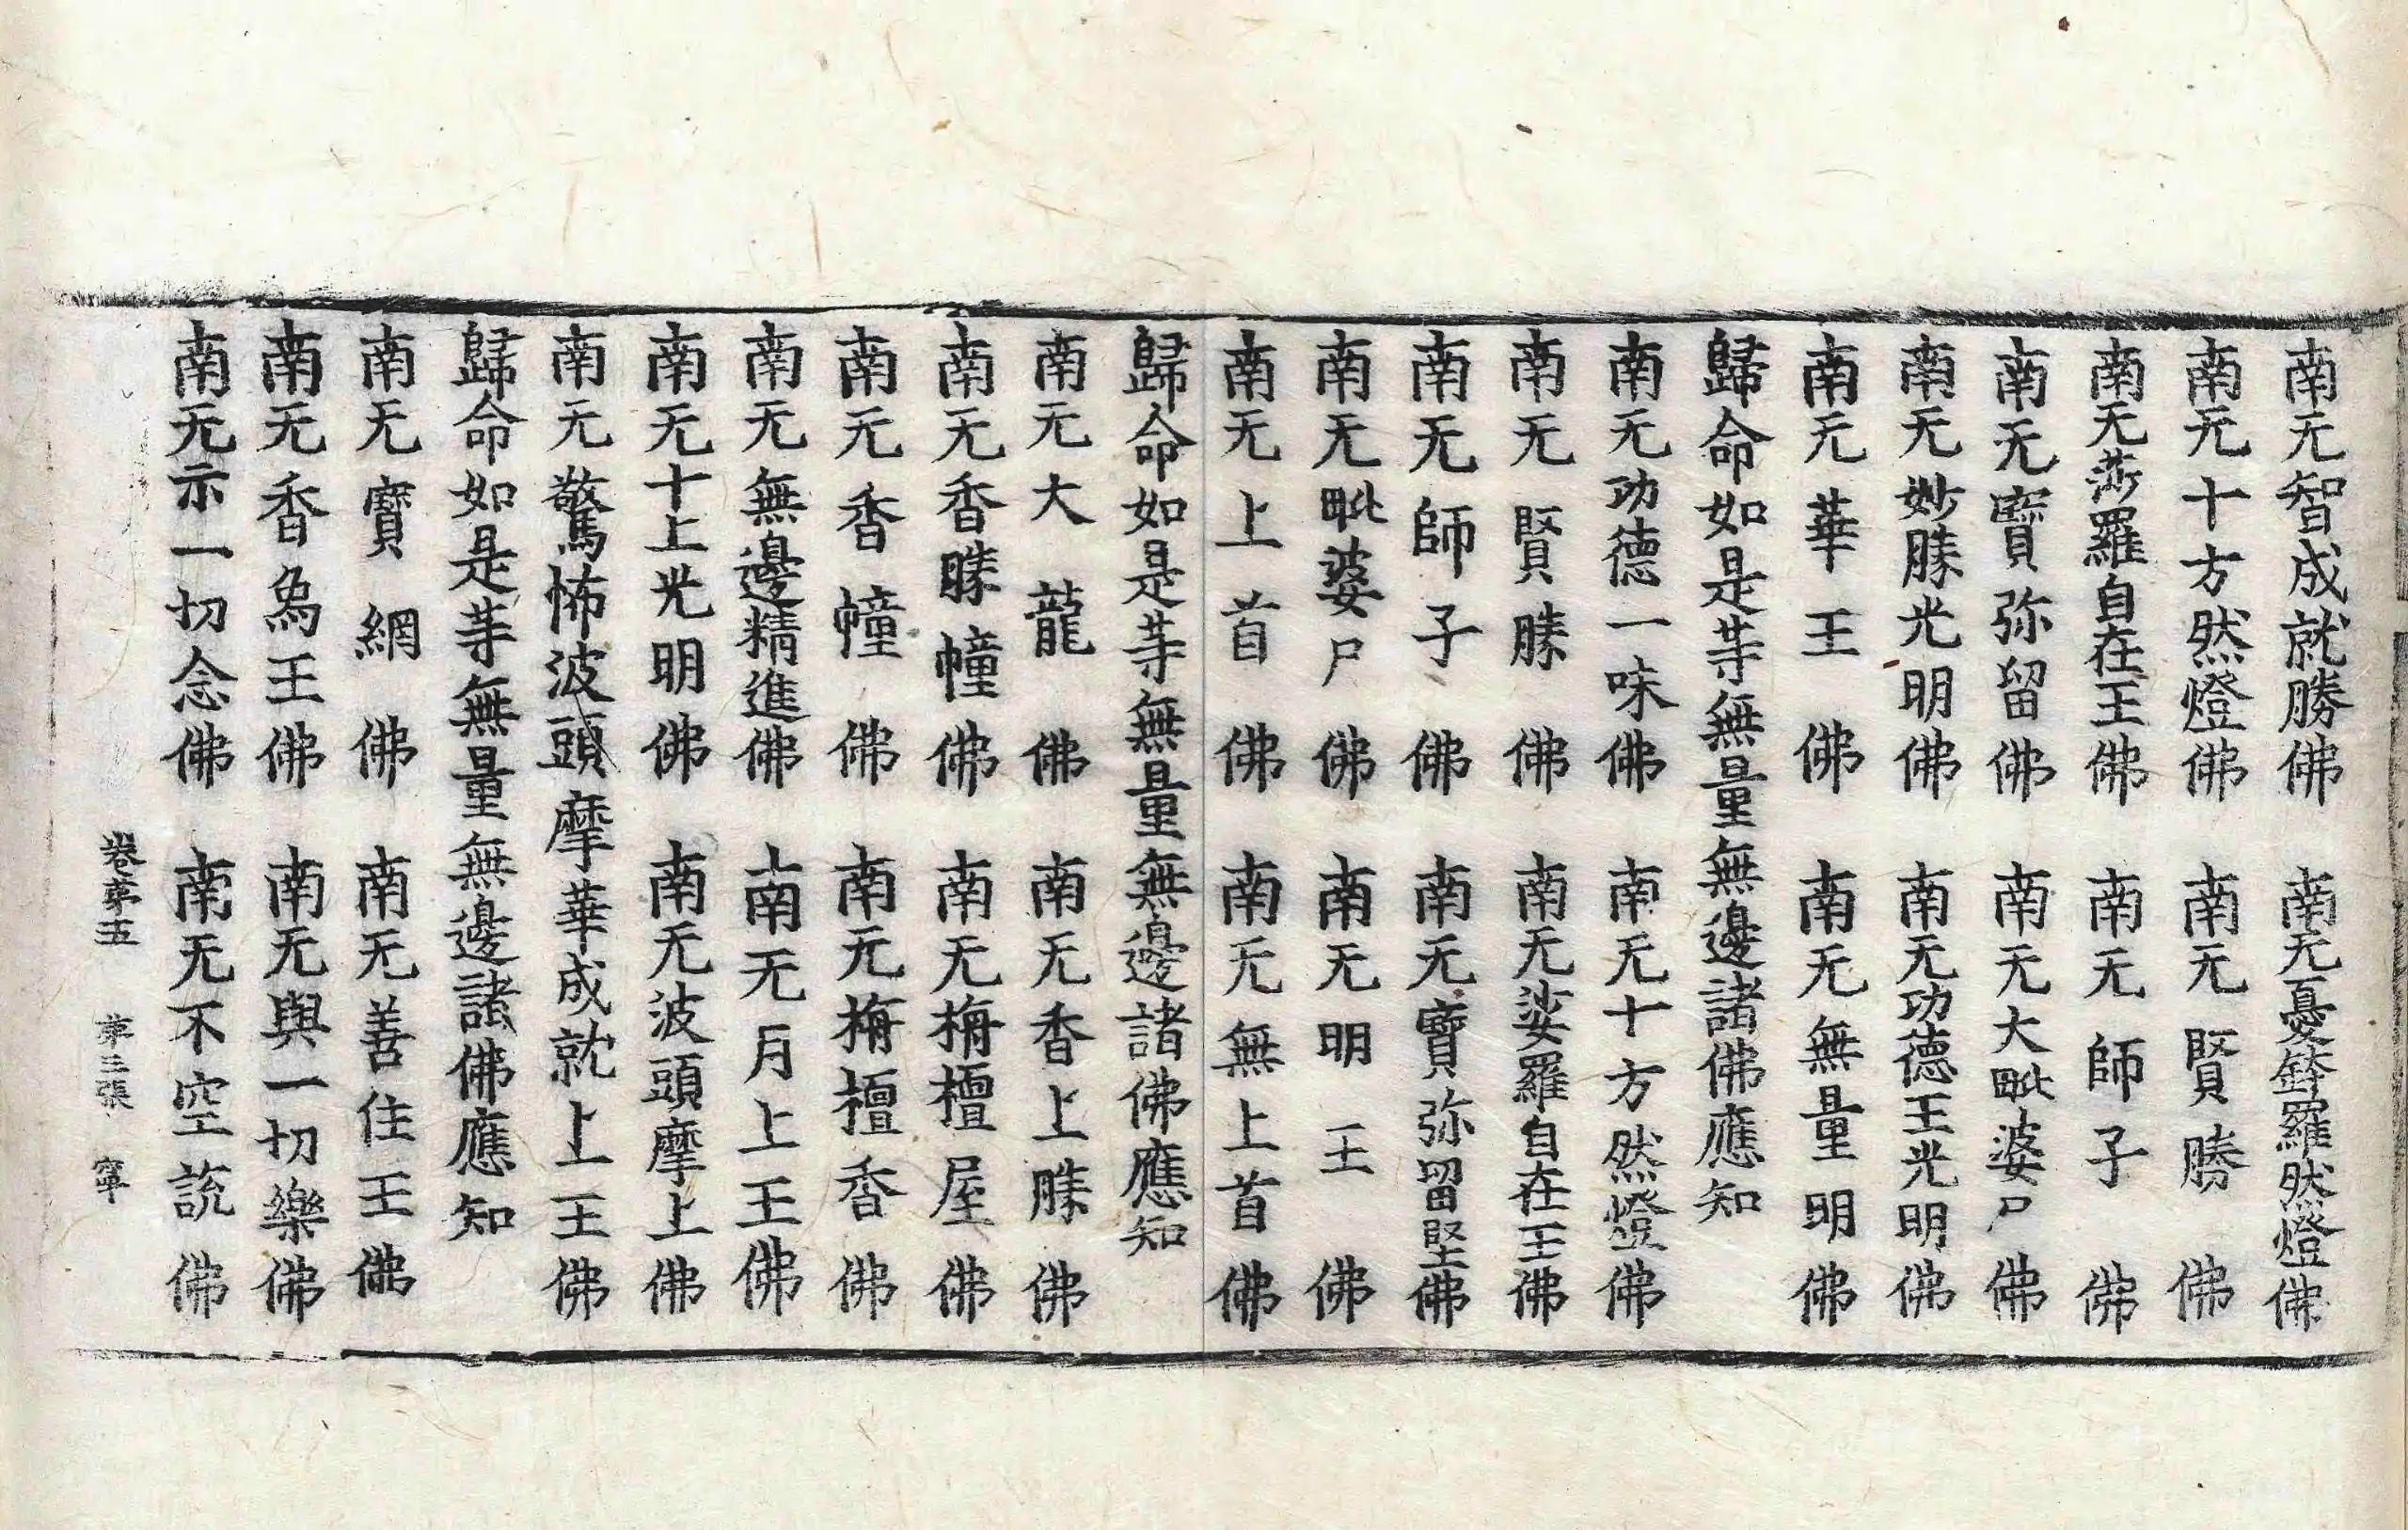 南无智成就勝佛　南无憂鉢羅然燈佛
南无十方然燈佛　南无賢勝佛
南无莎羅自在王佛　南无師子佛
南无寶弥留佛　南无大毗婆尸佛
南无妙勝光明佛　南无功德王光明佛
南无華王佛　南无無量明佛
歸命如是等無量無邊諸佛應知
南无功德一味佛　南无十方然燈佛
南无賢勝佛　南无娑羅自在王佛
南无師子佛　南无寶弥留堅佛
南无毗婆尸佛　南无明王佛
南无上首佛　南无無上首佛
歸命如是等無量無邊諸佛應知
南无大龍佛　南无香上勝佛
南无香勝幢佛　南无栴檀屋佛
南无香幢佛　南无栴檀香佛
南无無邊精進佛　南无月上王佛
南无十上光明佛　南无波頭摩上佛
南无驚怖波頭摩華成就上王佛
歸命如是等無量無邊諸佛應知
南无寶網佛　南无善住王佛
南无香象王佛　南无與一切樂佛
南无示一切念佛　南无不空說佛
卷苐五　苐三張　寧